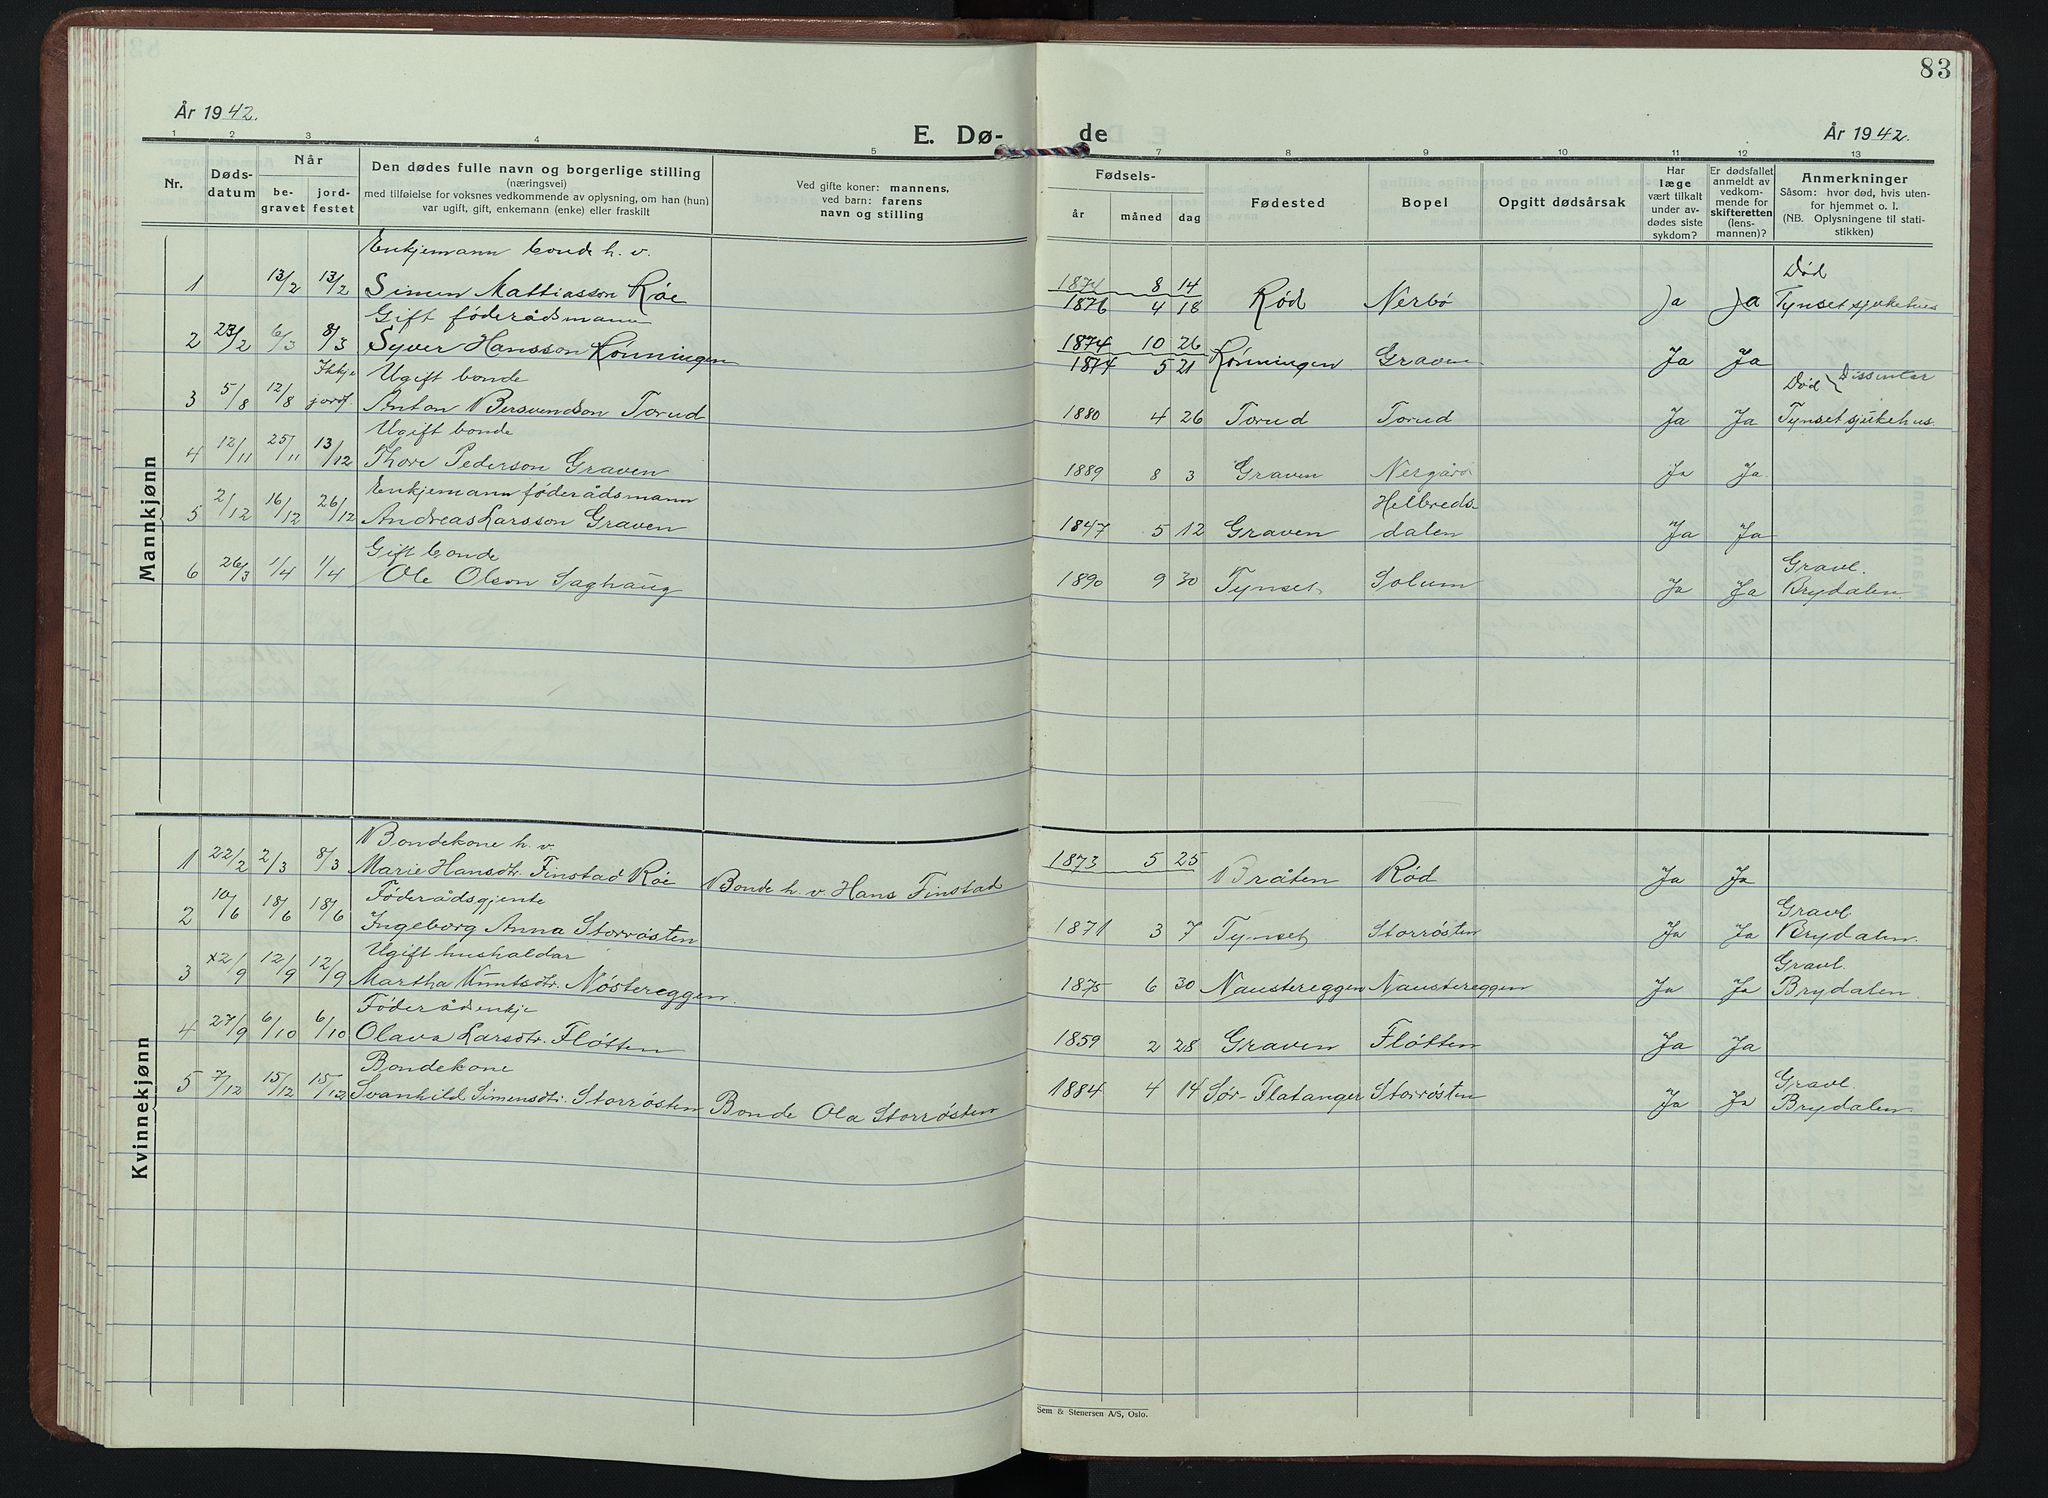 År 1942.
E. Dø-
1 2 3 4 5
Nr. Døds-datum Når be-gravet jord-festet Den dødes fulle navn og borgerlige stilling (næringsvei) med tilføielse for voksnes vedkommende av oplysning, om han (hun) var ugift, gift, enkemann (enke) eller fraskilt Ved gifte koner: mannens, ved barn: farens navn og stilling
Mannkjønn
Enkjemann bonde h. v.
1 13/2 13/2 Simen Mattiasson Røe
Gift føderådsmann
2 23/2 6/3 8/3 Syver Hansson Rønningen
Ikkje Ugift bonde
3 5/8 12/8 jordf. Anton Bersvendson Torud
Ugift bonde
4 12/11 25/11 13/12 Thore Pederson Graven
Enkjemann føderådsmann
5 2/12 16/12 26/12 Andreas Larsson Graven
Gift bonde
6 26/3 1/4 1/4 Ole Olson Saghaug
Kvinnekjønn
Bondekone h. v.
1 22/2 2/3 8/3 Marie Hansdtr. Finstad Røe Bonde h. v. Hans Finstad
Føderådsgjente
2 10/6 18/6 18/6 Ingeborg Anna Storrøsten
Ugift hushaldar
3 2/9 12/9 12/9 Martha Knutsdtr. Nøstereggen.
Føderådsenkje
4 27/9 6/10 6/10 Olava Larsdtr. Fløtten
Bondekone
5 7/12 15/12 15/12 Svanhild Simensdtr. Storrøsten Bonde Ola Storrøsten
83
de
År 1942.
7 8 9 10 11 12 13
Fødsels- år måned dag Fødested Bopel Opgitt dødsårsak Har læge vært tilkalt under av-dødes siste sykdom? Er dødsfallet anmeldt av vedkom-mende for skifteretten (lens-mannen)? Anmerkninger Såsom: hvor død, hvis uten-for hjemmet o. l. (NB. Oplysningene til stati-stikken)
1874 8 14 Død
1876 4 18 Rød Nerbø Ja Ja Tynset sjukehus
1874 10 26
1874 5 21 Rønningen Graven Ja Ja
Død Dissenter
1880 4 26 Torud Torud Ja Ja Tynset sjukehus.
1889 8 3 Graven Nergård Ja Ja
Helbreds-
1847 5 12 Graven dalen Ja Ja
Gravl.
1890 9 30 Tynset Solum Ja Ja Brydalen.
1873 5 25 Bråten Rød Ja Ja
Gravl
1871 3 7 Tynset Storrøsten Ja Ja Brydalen.
Gravl.
1875 6 30 Naustereggen Naustereggen Ja Ja Brydalen.
1859 2 28 Graven Fløtten Ja Ja
Gravl.
1884 4 14 Sør-Flatanger Storrøsten Ja Ja Brydalen.
Sem & Stenersen A/S, Oslo.